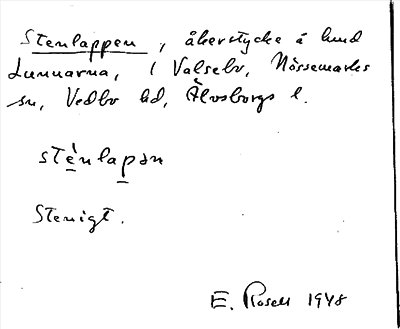 Stenlappen, åkerstycke å hmd
Lunnarna, i Valsebo, Nössemarks
sn, Vedbo hd, Älvsborgs l.
stènlapən
Stenigt.
E. Rosell 1948